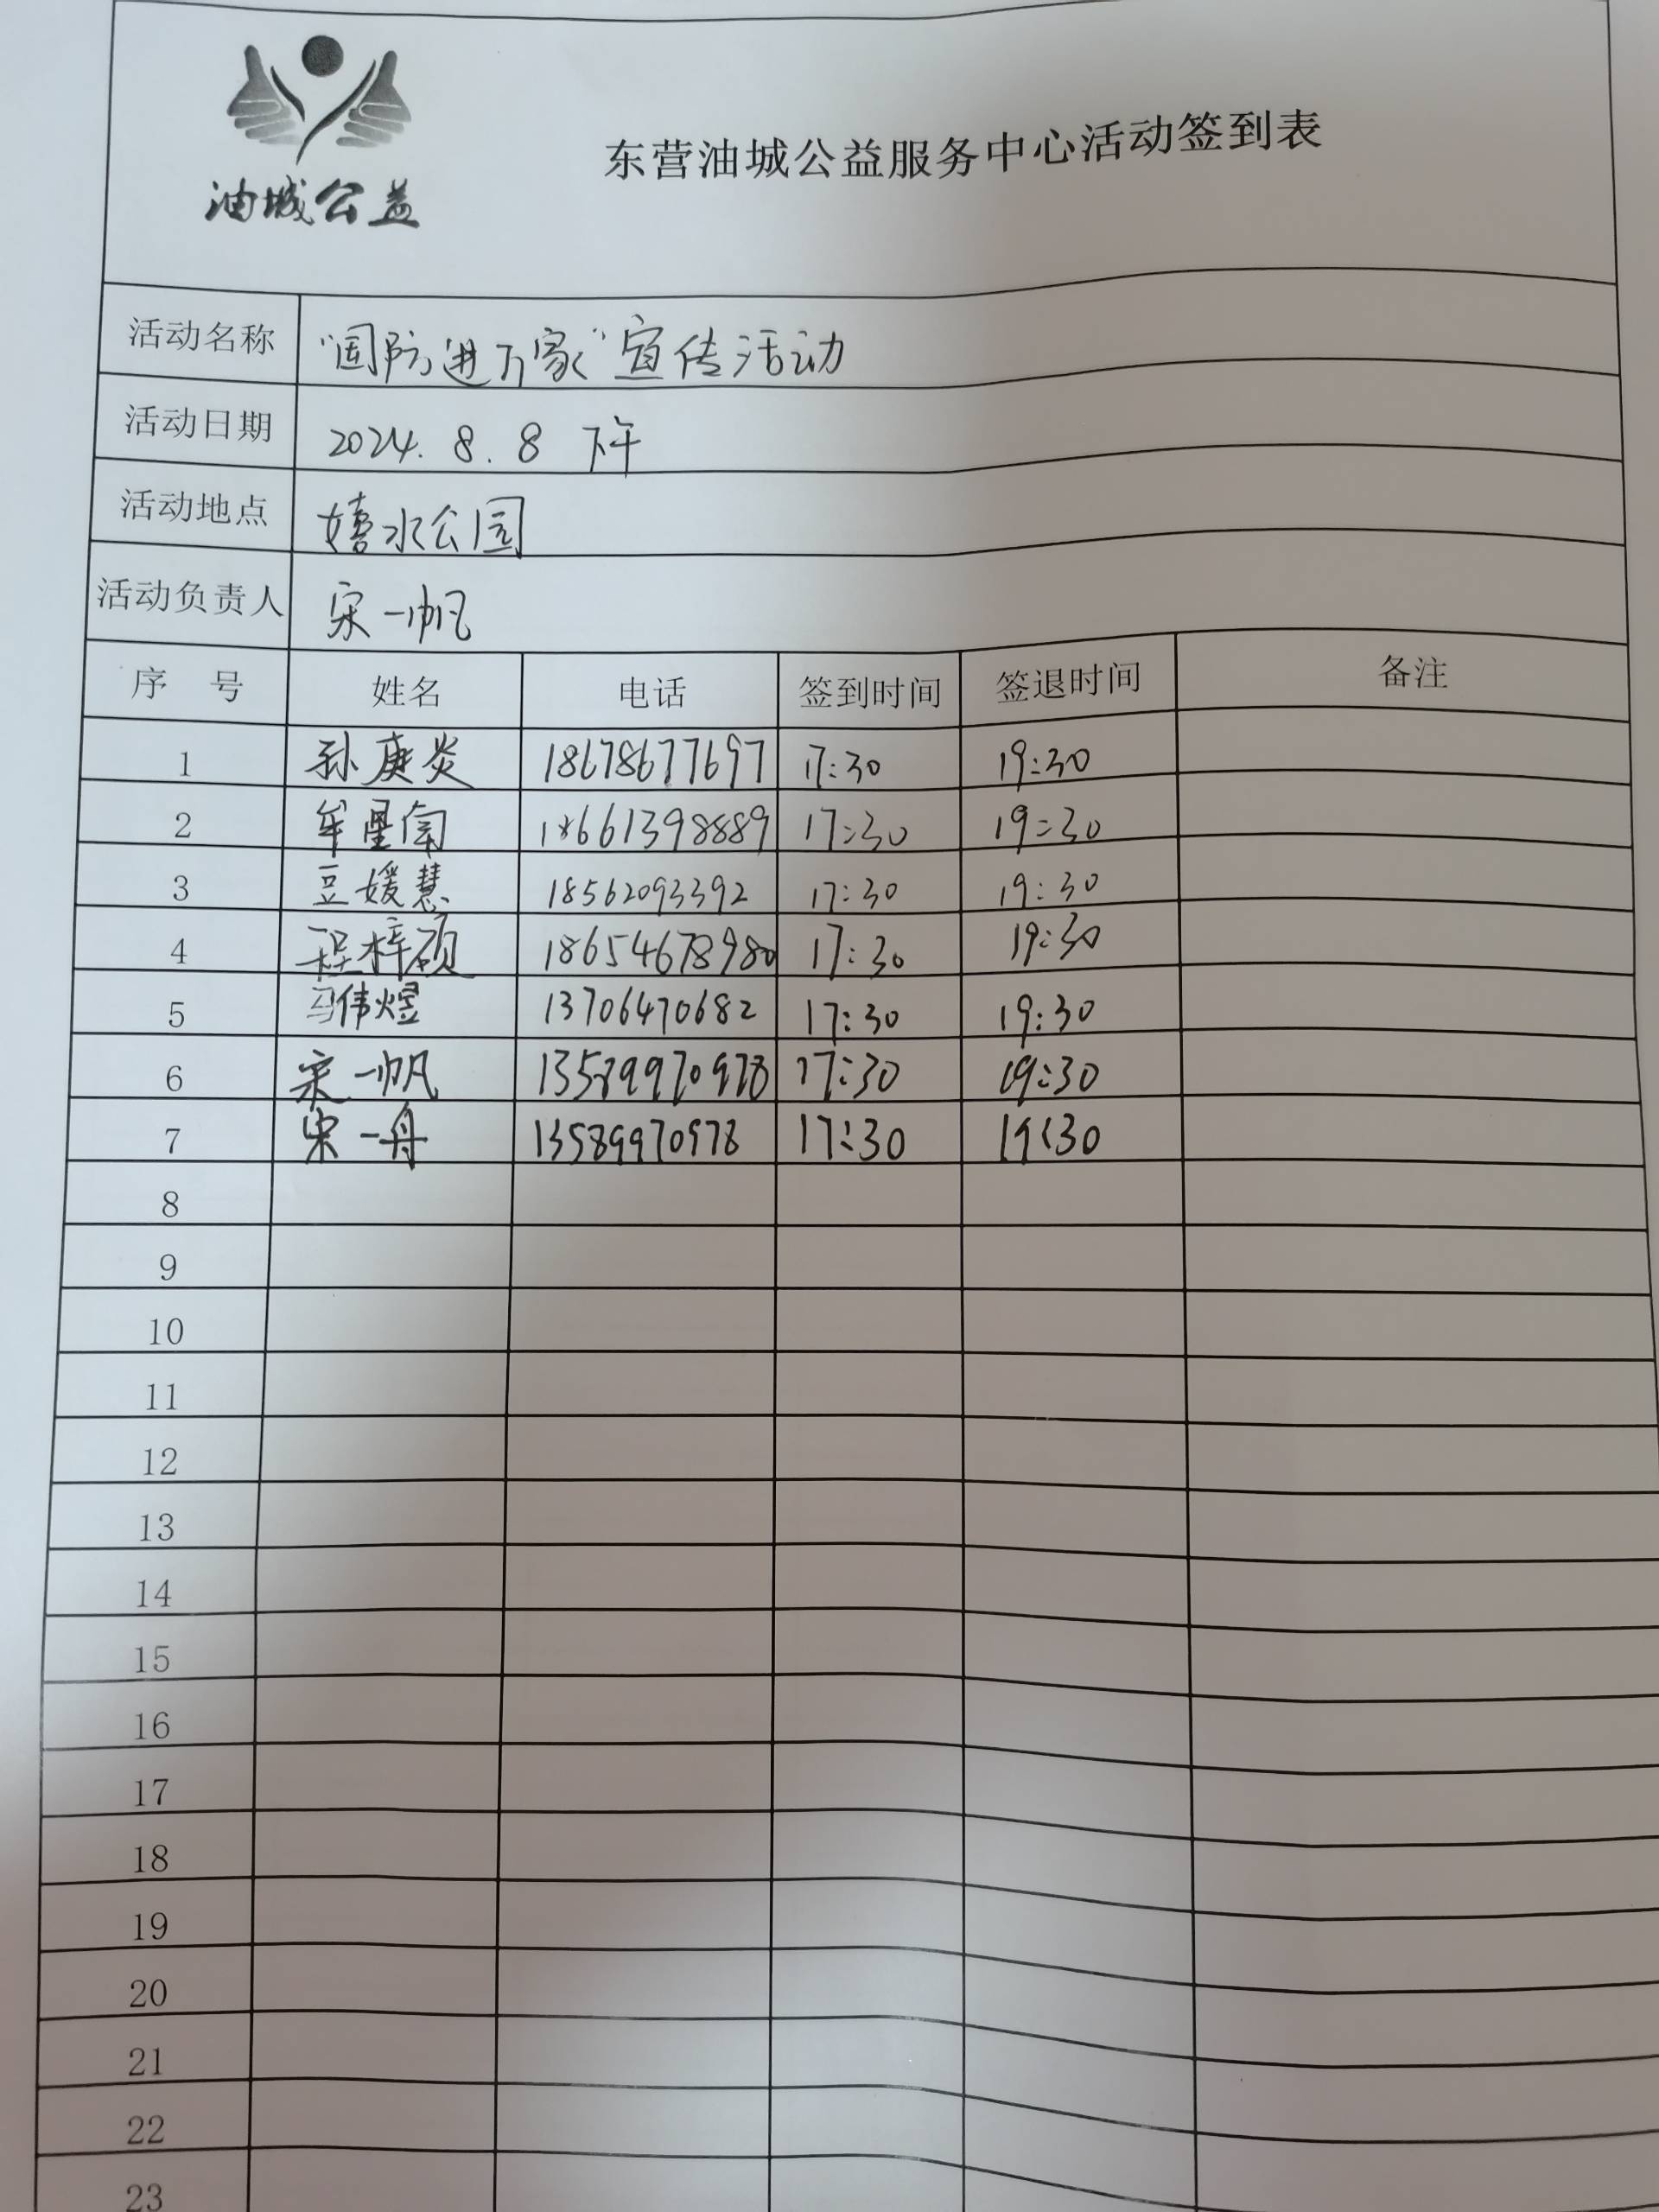 油城公益
东营油城公益服务中心活动签到表
活动名称 "国防进万家"宣传活动
活动日期 2024.8.8 下午
活动地点 嬉水公园
活动负责人 宋一帆
序 号 姓名 电话 签到时间 签退时间 备注
1 孙庚炎 18678677697 17:30 19:30
2 牟星 18661398889 17:30 19:30
3 豆媛慧 18562093392 17:30 19:30
4 程梓硕 18654678980 17:30 19:30
5 马伟煜 13706470682 17:30 19:30
6 宋一帆 13589970978 17:30 19:30
7 宋一舟 13589970978 17:30 19:30
8
9
10
11
12
13
14
15
16
17
18
19
20
21
22
23